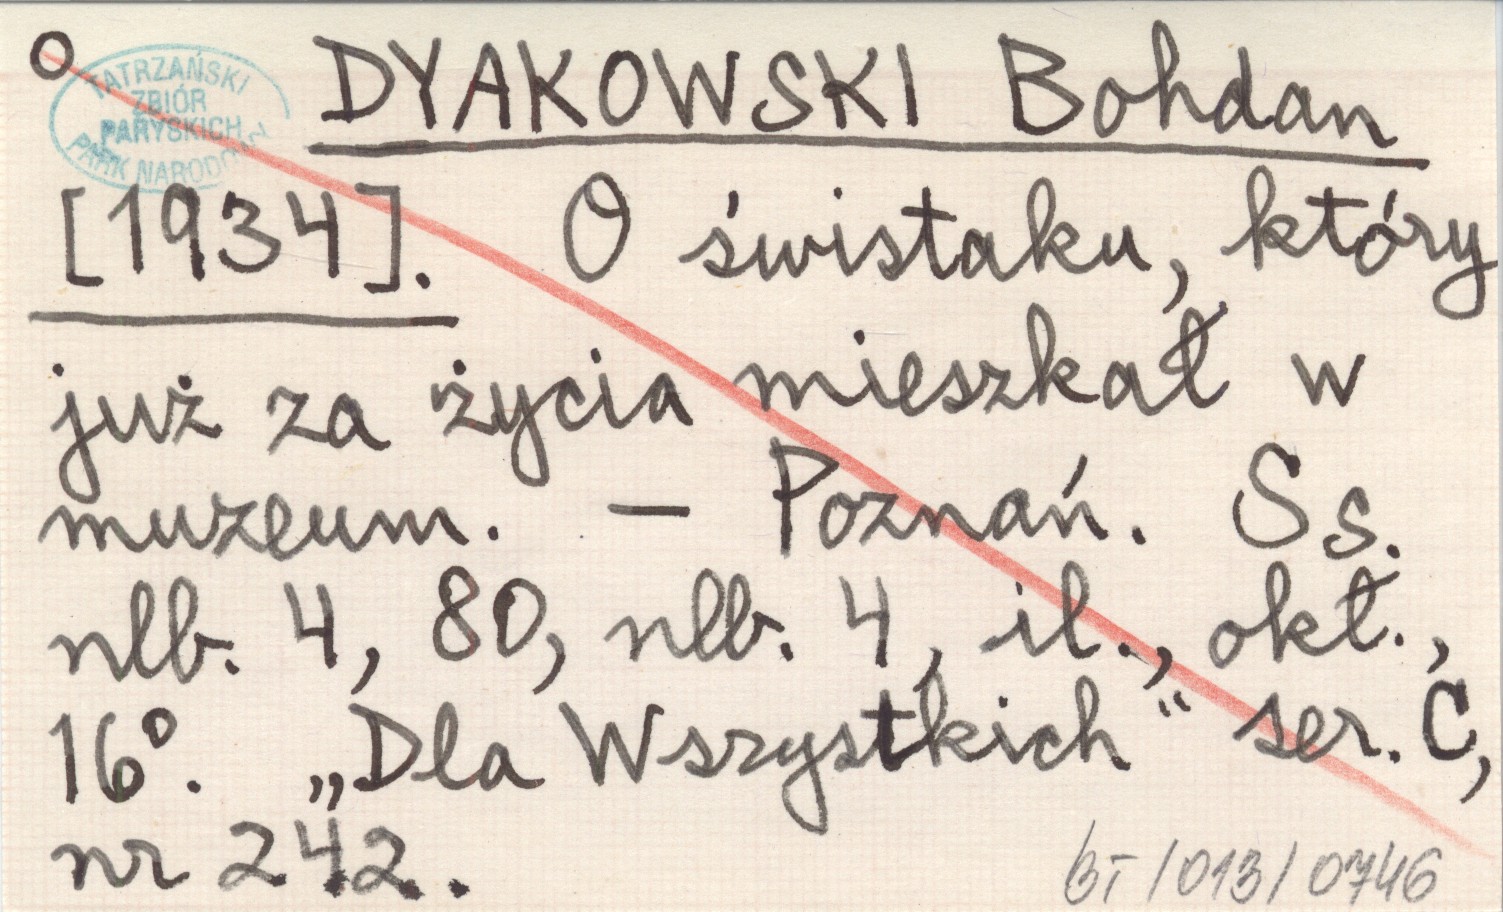 TATRZAŃSKI
ZBIÓR
PARYSKICH
PARK NARODOWY
DYAKOWSKI Bohdan
[1934]. O świstaku, który
już za życia mieszkał w
muzeum. — Poznań. Ss.
nlb. 4, 80, nlb. 4, il., okł.,
16°. „Dla Wszystkich“ ser. C,
nr 242.
bT/013/0746